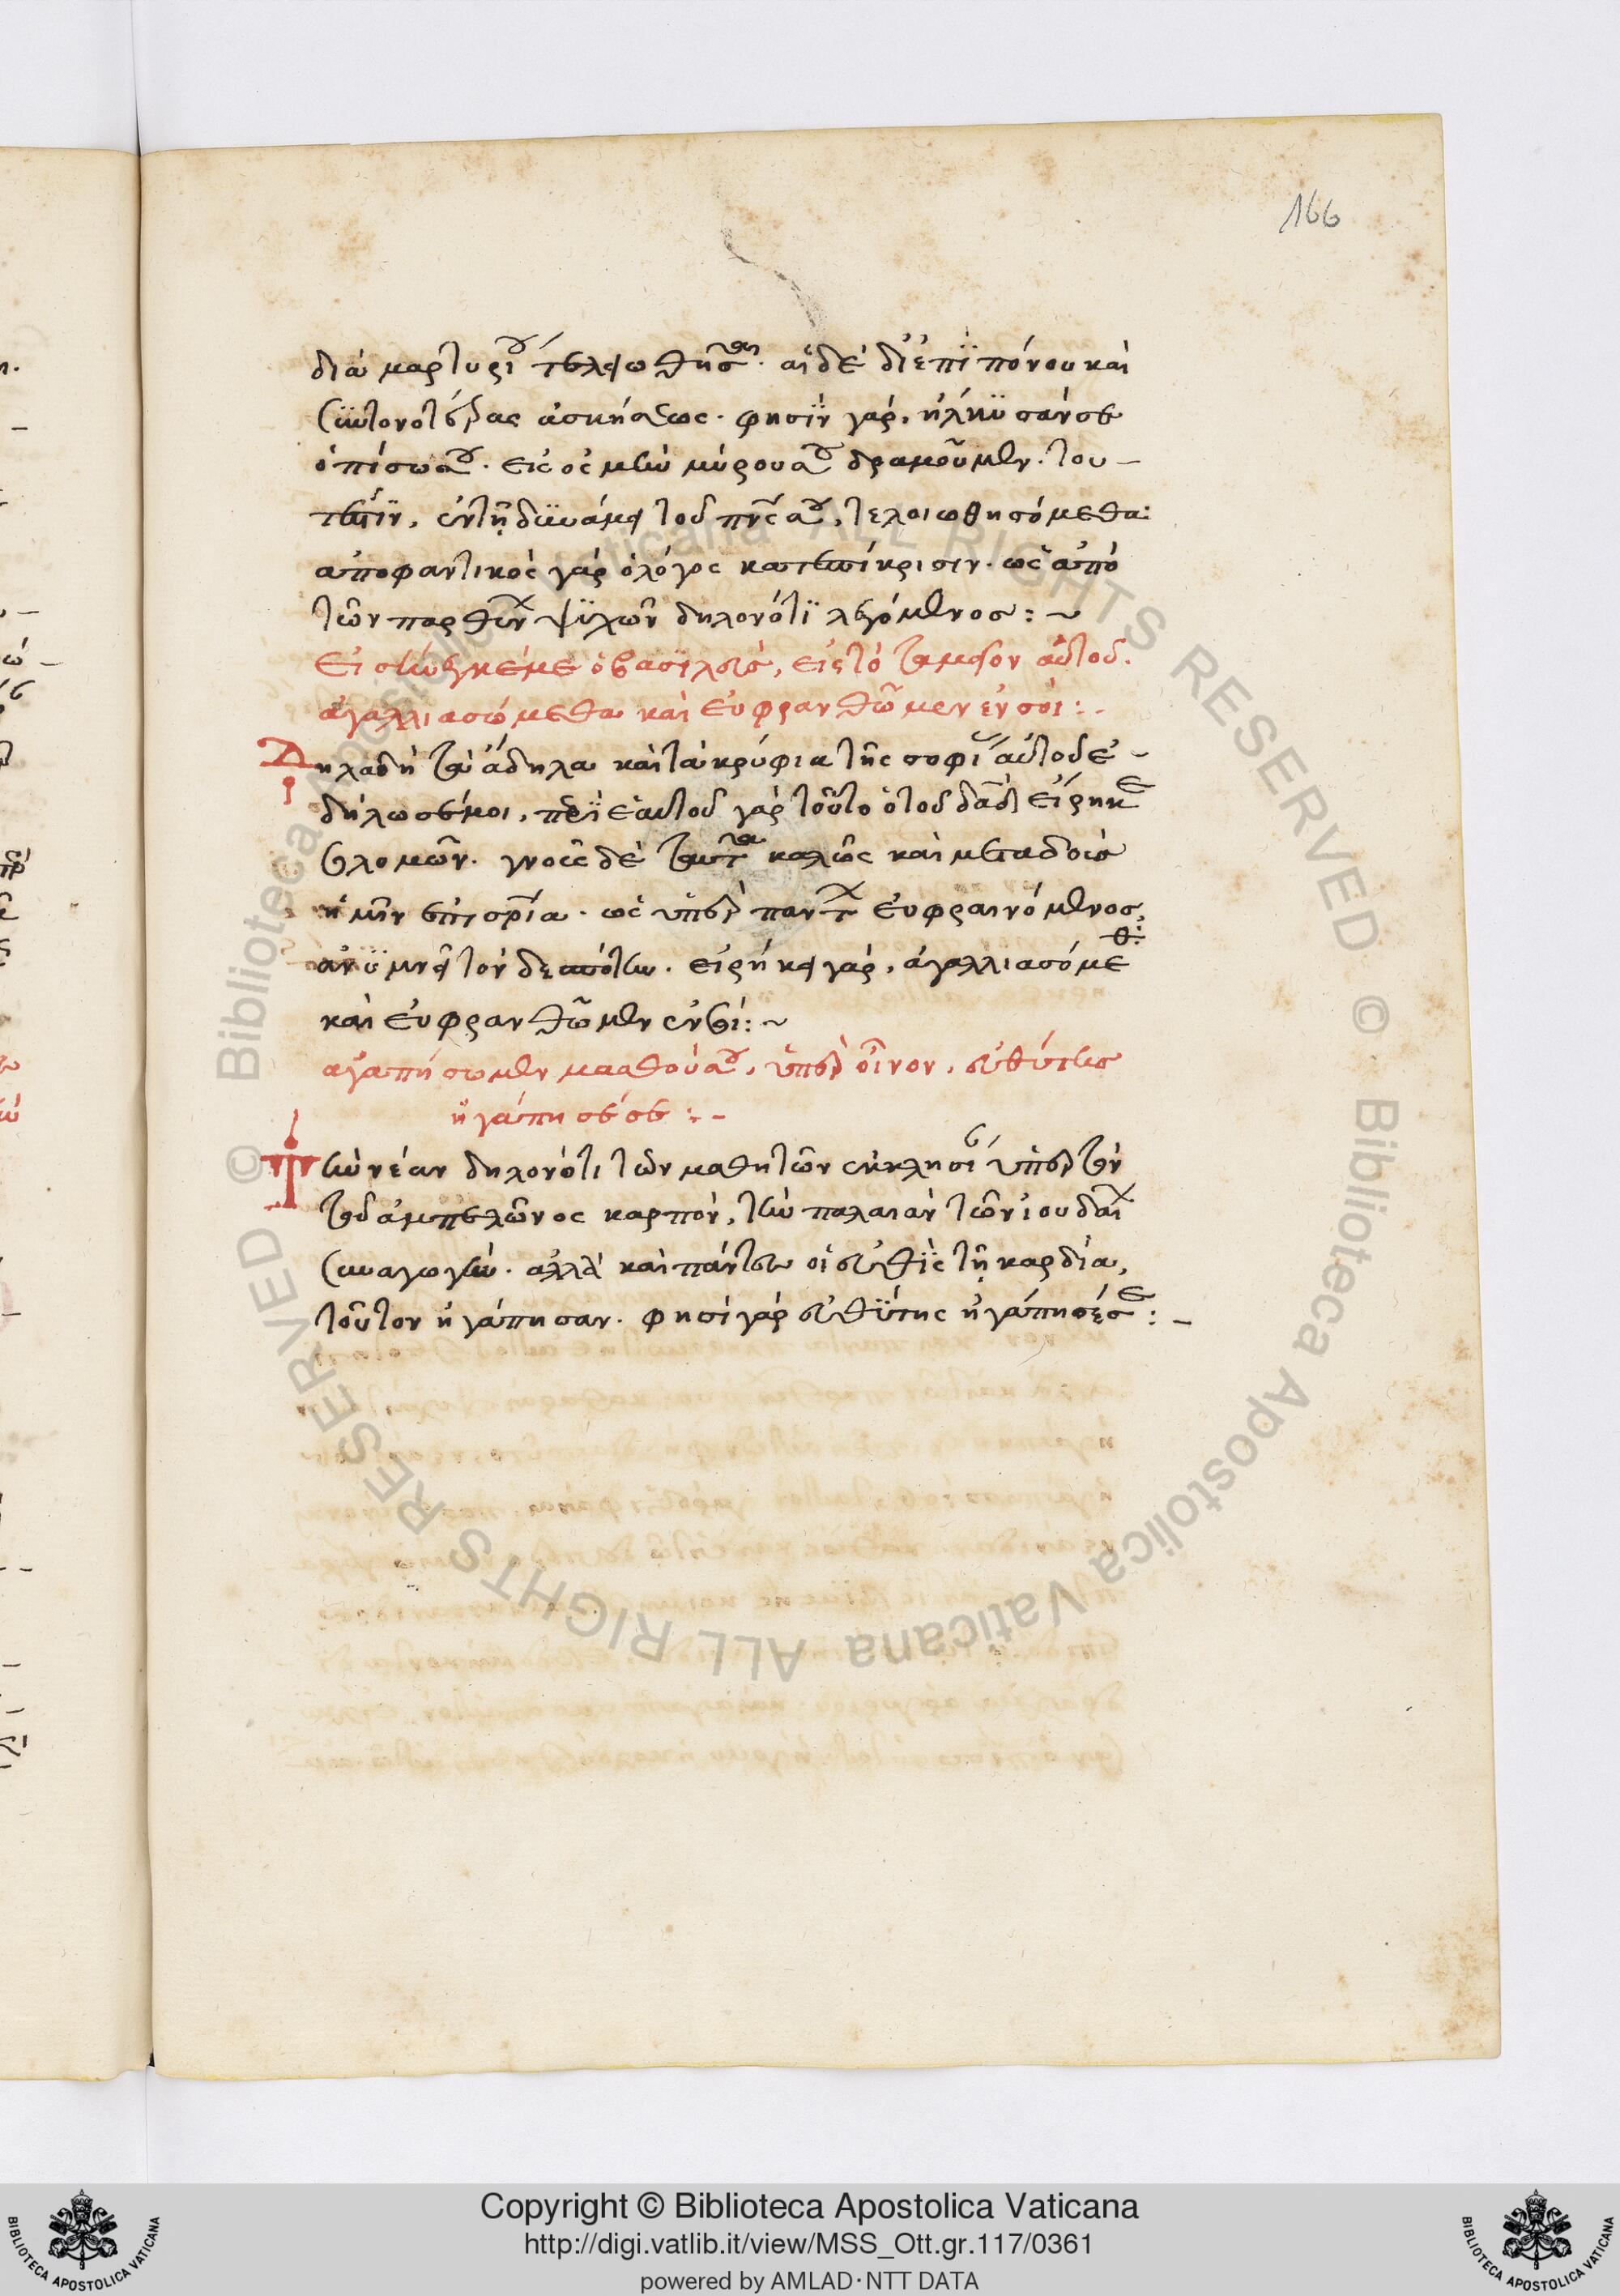 166
διὰ μαρτυρίου τελειωθῆσαι· αἱ δὲ δι' ἐπϊπόνου καὶ
συντονοτέρας ἀσκήσεως· φησὶν γάρ, ἥλκυσάν σε
ὀπίσω σου· εἰς ὀσμὴν μύρου σου δραμοῦμεν· του-
τέστιν, ἐν τῇ δυνάμει τοῦ πνς σου, τελειωθησόμεθα:
ἀποφαντικὸς γὰρ ὁ λόγος κατεπίκρισιν· ὡς ἀπὸ
τῶν παρθένων ψϋχῶν δηλονότϊ λεγόμενος: ~
Εἰσήνεγκέ με ὁ βασιλεὺς, εἰς τὸ ταμεῖον αὐτοῦ.
ἀγαλλιασώμεθα καὶ εὐφρανθῶμεν ἐν σοί: -
Δηλαδὴ τὰ ἄδηλα καὶ τὰ κρύφια τῆς σοφίας αὐτοῦ ἐ-
δήλωσέ μοι, περὶ ἑαυτοῦ γὰρ τοῦτο ὁ τοῦ δαδ εἴρηκε
σολομῶν· γνοὺς δὲ ταῦτα καλῶς καὶ μεταδοὺς
ἡμῖν ἐπισρία· ὡς ὑπὲρ πάντων εὐφραινόμενος,
ἀνϋμνεῖ τὸν δεσπότην· εἰρήκει γάρ, ἀγαλλιασόμεθα:
καὶ εὐφρανθῶμεν ἐν σοί: ~
ἀγαπήσωμεν μασθούς σου, ὑπὲρ οἶνον, εὐθύτης
ἠγάπησέ σε: -
Τὴν νέαν δηλονότι τῶν μαθητῶν ἐκκλησίαν ὑπὲρ τὸν
τοῦ ἀμπελῶνος καρπόν, τὴν παλαιὰν τῶν ἰουδαίων
συναγωγήν· ἀλλὰ καὶ πάντες οἱ εὐθεῖς τῇ καρδία,
τοῦτον ἠγάπησαν· φησὶ γὰρ εὐθύτης ἠγάπησέ σε: -
Copyright © Biblioteca Apostolica Vaticana
http://digi.vatlib.it/view/MSS_Ott.gr.117/0361
powered by AMLAD·NTT DATA
BIBLIOTECA APOSTOLICA VATICANA
BIBLIOTECA APOSTOLICA VATICANA
© Biblioteca Apostolica Vaticana ALL RIGHTS RESERVED © Biblioteca Apostolica Vaticana ALL RIGHTS RESERVED